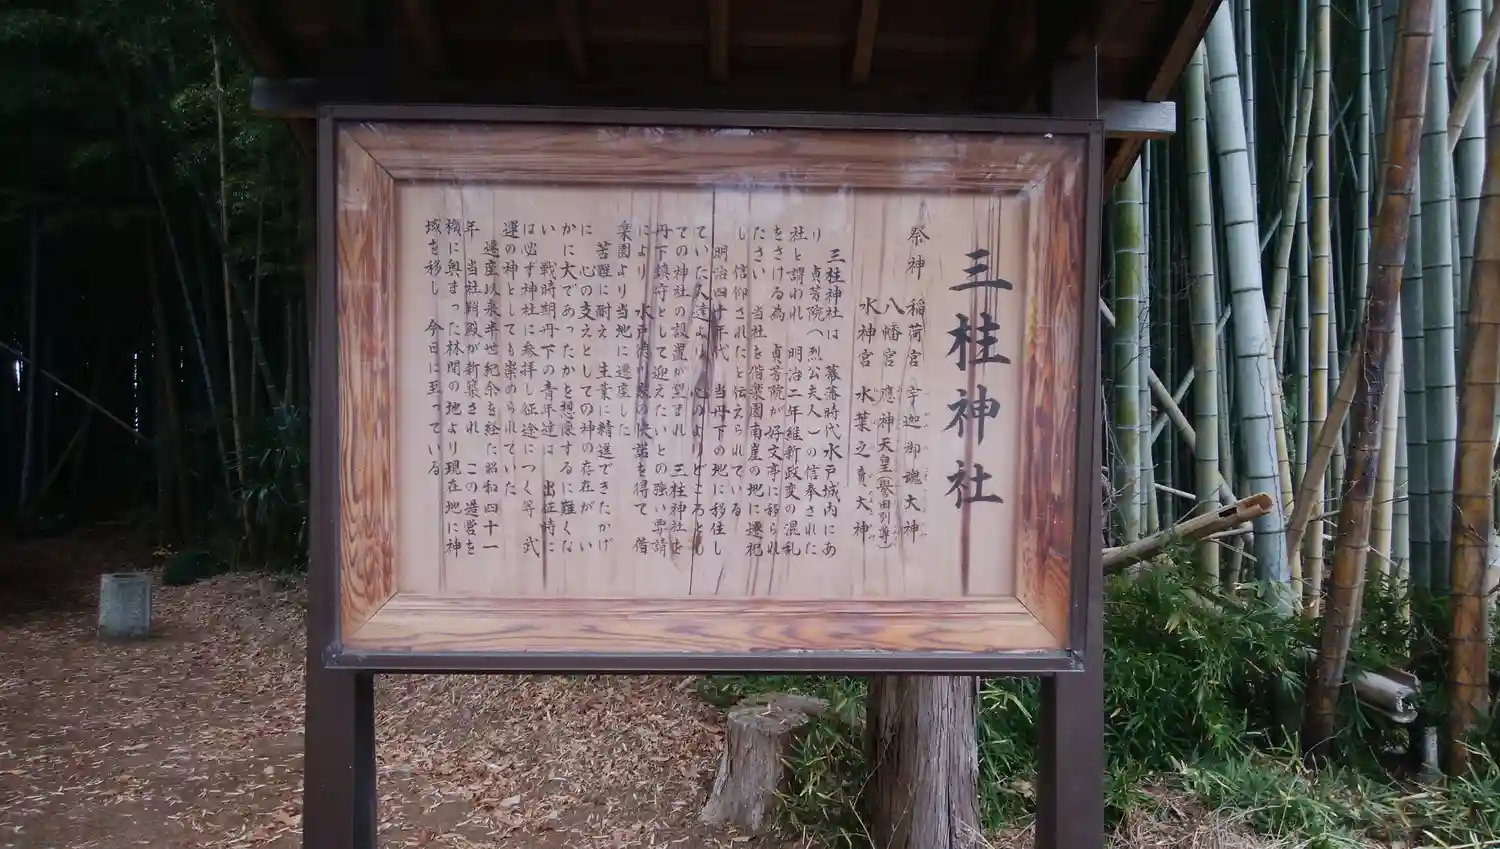 三桂神社
祭神 稲荷宮 宇迦御魂大神
八幡宮 應神天皇(誉田別尊)
水神宮 水葉之賣大神
三桂神社は 幕藩時代水戸城内にあ
り 貞芳院(烈公夫人)の信奉された
社と謂われ 明治二年維新政変の混乱
をさける為 貞芳院が好文亭に移られ
たさい 当社を偕楽園南崖の地に遷祀
し 信仰されたと伝えられている
明治四十年代 当丹下の地に移住し
ていた人達より 心のよりどころとし
ての神社の設置が望まれ 三桂神社を
丹下鎮守として迎えたいとの強い要請
により 水戸徳川家の快諾を得て 偕
楽園より当地に遷座した
苦難に耐え 生業に精進できたかげ
に 心の支えとしての神の存在が い
かに大であったかを想像するに難くな
い 戦時期丹下の青年達は 出征時に
は必ず神社に参拝し征途につく等 武
運の神としても崇められていた
遷座以来半世紀余を経た昭和四十一
年 当社鞘殿が新築され この造営を
機に奥まった林間の地より現在地に神
域を移し 今日に至っている